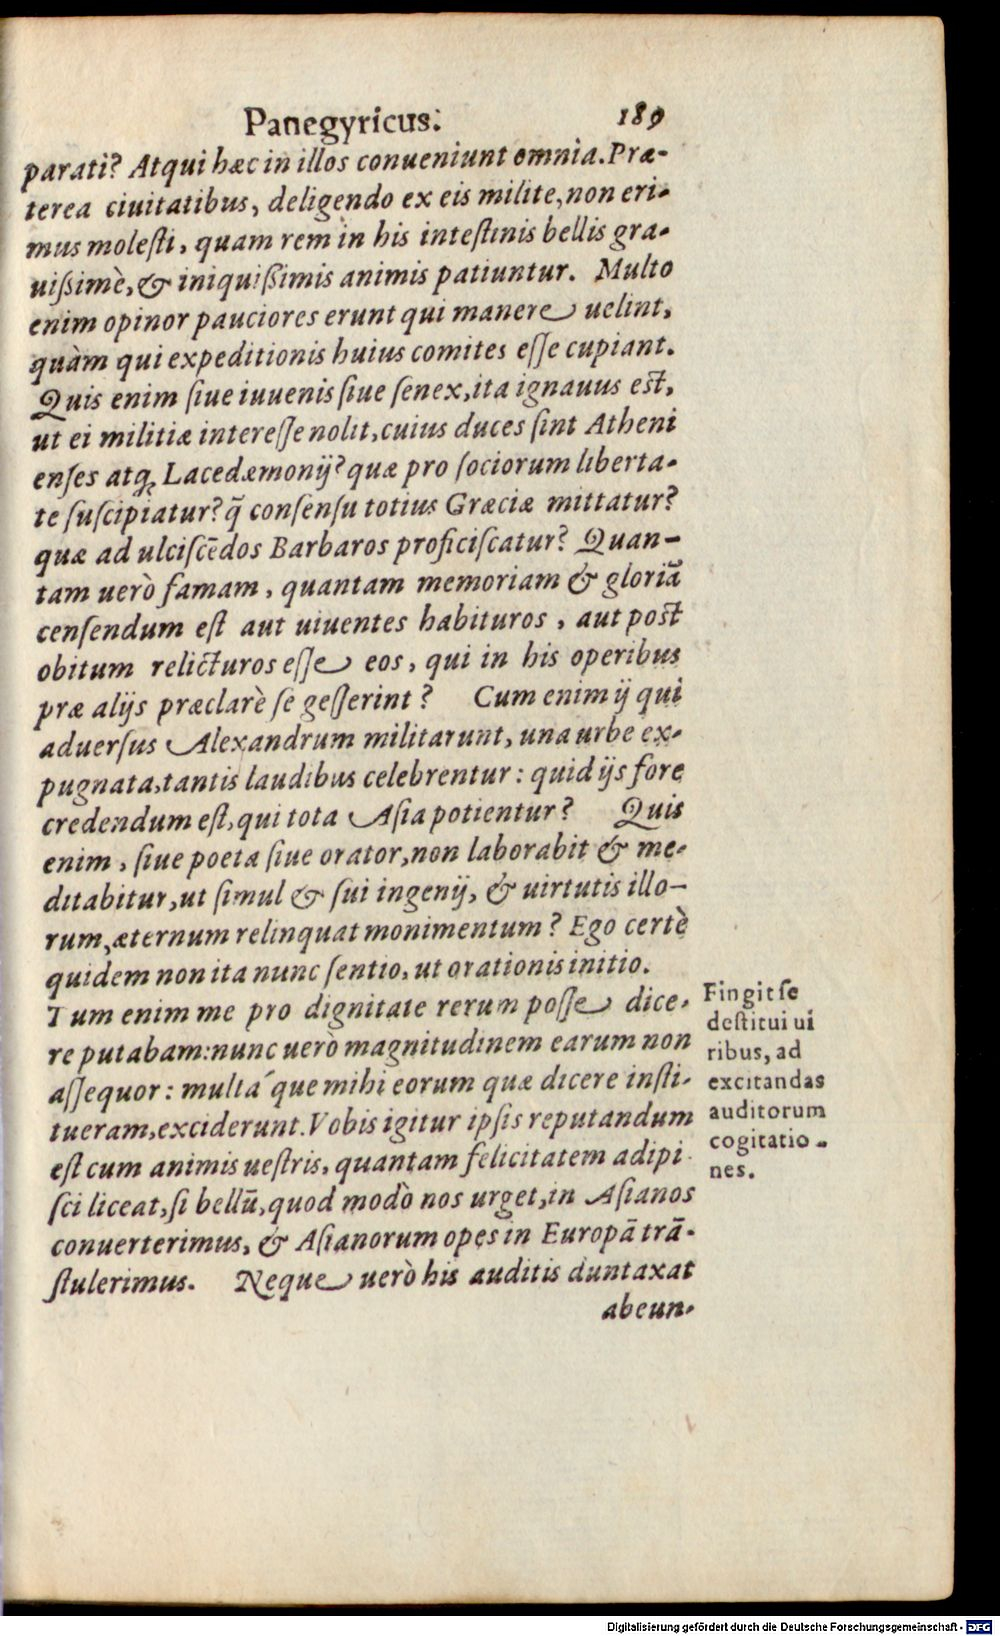 Panegyricus. 189
parati? Atqui hæc in illos conueniunt omnia. Præ-
terea ciuitatibus, deligendo ex eis milite, non eri-
mus molesti, quam rem in his intestinis bellis gra-
uißimè, & iniquißimis animis patiuntur. Multo
enim opinor pauciores erunt qui manere uelint,
quàm qui expeditionis huius comites eſſe cupiant.
Quis enim ſiue iuuenis ſiue ſenex, ita ignauus eſt,
ut ei militiæ intereſſe nolit, cuius duces ſint Atheni
enſes atq; Lacedæmonij? quæ pro ſociorum liberta-
te ſuſcipiatur? q̃ conſenſu totius Græciæ mittatur?
quæ ad ulciſcēdos Barbaros proficiſcatur? Quan-
tam uerò famam, quantam memoriam & gloriā
cenſendum eſt aut uiuentes habituros, aut poſt
obitum relicturos eſſe eos, qui in his operibus
præ alijs præclarè ſe geſſerint? Cum enim ij qui
aduerſus Alexandrum militarunt, una urbe ex-
pugnata, tantis laudibus celebrentur: quid ijs fore
credendum eſt, qui tota Aſia potientur? Quis
enim, ſiue poeta ſiue orator, non laborabit & me-
ditabitur, ut ſimul & ſui ingenij, & uirtutis illo-
rum, æternum relinquat monimentum? Ego certè
quidem non ita nunc ſentio, ut orationis initio.
Tum enim me pro dignitate rerum poſſe dice-
re putabam: nunc uerò magnitudinem earum non
aſſequor: multa´que mihi eorum quæ dicere inſti-
tueram, exciderunt. Vobis igitur ipſis reputandum
eſt cum animis ueſtris, quantam felicitatem adipi-
ſci liceat, ſi bellū, quod modò nos urget, in Aſianos
conuerterimus, & Aſianorum opes in Europā trā-
ſtulerimus. Neque uerò his auditis duntaxat
abeun-
Fingit ſe
deſtitui ui
ribus, ad
excitandas
auditorum
cogitatio-
nes.
Digitalisierung gefördert durch die Deutsche Forschungsgemeinschaft - DFG